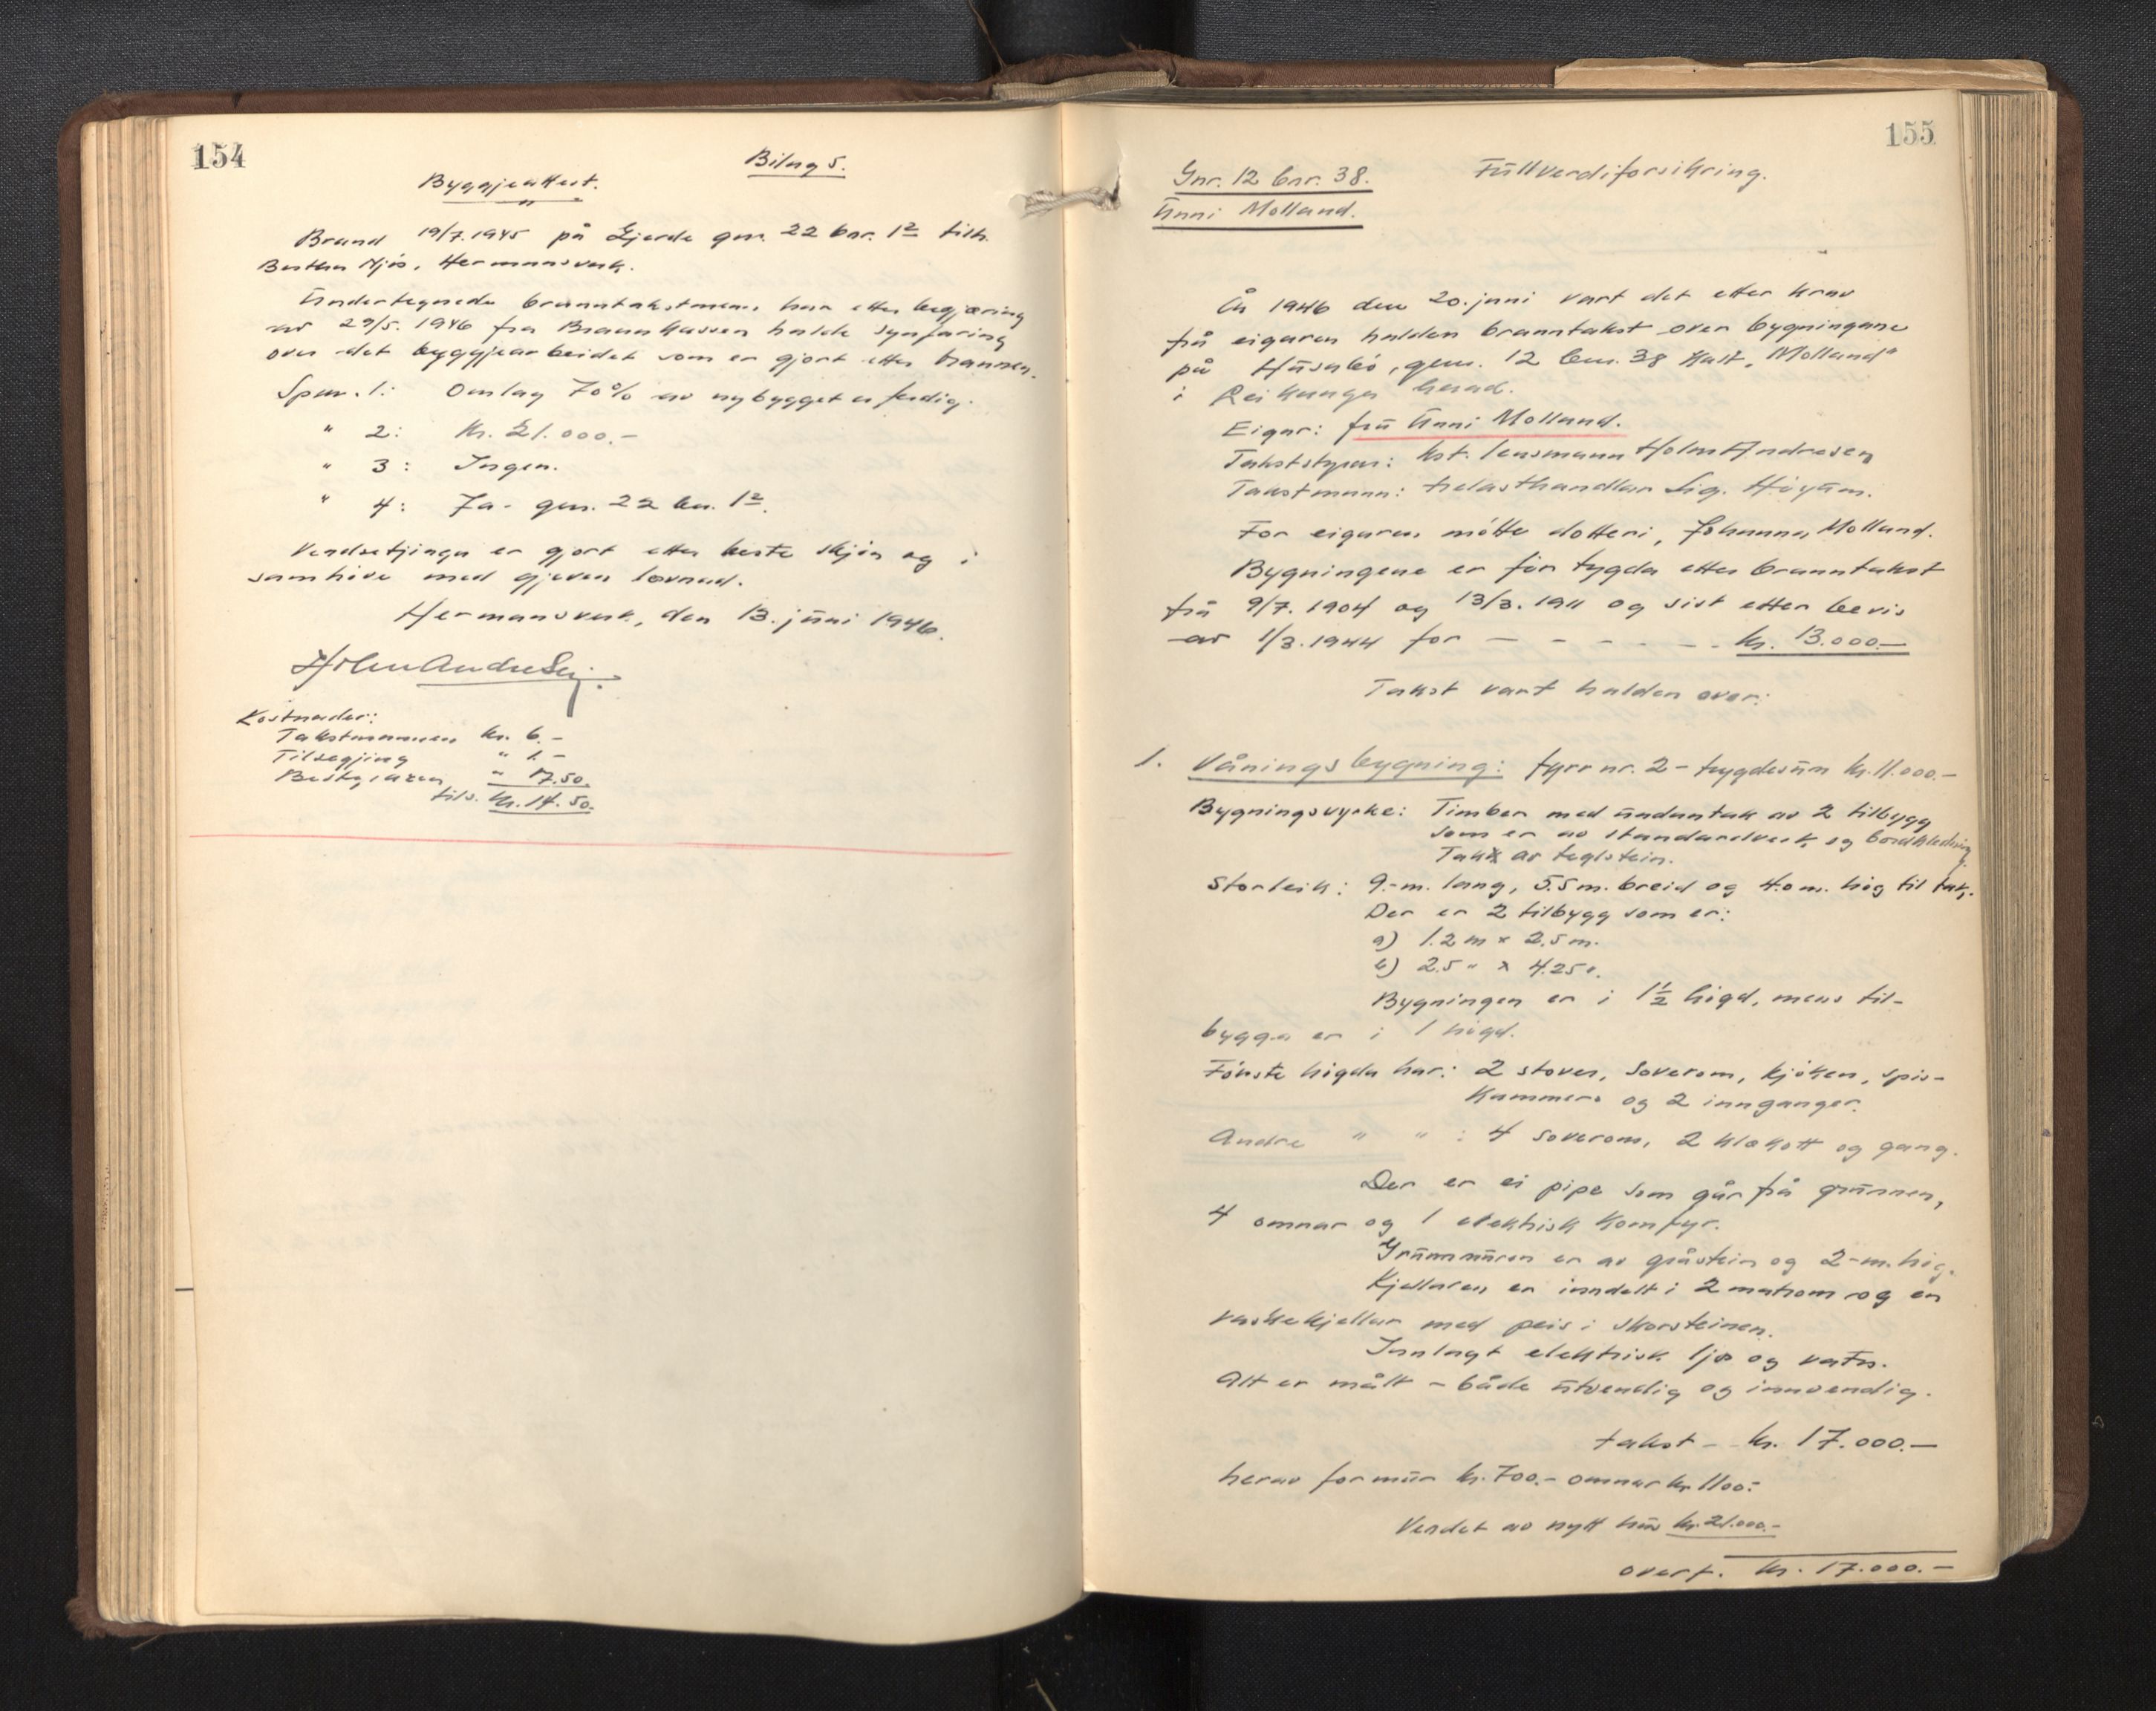 154
Bilag 5.
Byggjeattest.
Brand 19/7.1945 på Gjerde gnr. 22 bnr. 12 tilh.
Berthe Njøs, Hermansverk.
Undertegnede branntakstmenn har etter begjæring
av 29/5.1946 fra Brannkassen halde synfaring
over det byggjearbeidet som er gjort etter brannen.
Spm. 1: Omlag 70% av nybygget er ferdig.
" 2: Kr. 21.000.-
" 3: Ingen.
" 4: Ja - gnr. 22 bnr. 12.
Verdsetjinga er gjort etter beste skjøn og i
samhøve med gjeven lovnad.
Hermansverk, den 13. juni 1946.
Holm Andresen.
Kostnader:
Takstmannen kr. 6.-
Tilsegjing " 1.-
tils. kr. 14.50.
155
Gnr. 12 bnr. 38.
Fullverdiforsikring.
Unni Molland.
År 1946 den 20. juni vart det etter krav
frå eigaren halden branntakst over bygningane
på Husabø, gnr. 12 bnr. 38 kalt "Molland"
i Leikanger herad.
Eigar: fru Unni Molland.
Takststyrar: kst. lensmann Holm Andresen
Takstmann: trelasthandlar Sig. Høyum.
For eigaren møtte dotteri, Johanna Molland.
Bygningene er før tygda etter branntakst
frå 9/7.1904 og 13/3.1911 og sist etter bevis
av 1/3.1944 for - - - - - - kr. 13.000.-
Takst vart halden over:
1. Våningsbygning: fyrr nr. 2 - trygdesum kr. 11.000.-
Bygningsvyrke: Timber med undantak av 2 tilbygg
som er av standardverk og bordkledning.
Tak av teglstein.
Storleik: 9.- m. lang, 5.5 m. breid og 4.0 m. høg til tak.
Der er 2 tilbygg som er:
a) 1.2 m x 2.5 m.
b) 2.5 " x 4.25 ".
Bygningen er i 1 1/2 høgd, mens til-
bygga er i 1 høgd.
Første høgda har: 2 stover, soverom, kjøken, spis-
kammers og 2 innganger.
Andre " " : 4 soverom, 2 klækott og gang.
Der er ei pipe som går frå grunnen,
4 omnar og 1 elektrisk komfyr.
Grunnmuren er av gråstein og 2 - m. høg.
Kjellaren er inndelt i 2 matrom og en
vaskekjellar med peis i skorsteinen.
Innlagt elektrisk ljos og vatn.
Alt er målt - både utvendig og innvendig.
takst - - kr. 17.000.-
herav for mur kr. 700.- omnar kr. 1100.-
Verdet av nytt hus kr. 21.000.-
overf. kr. 17.000.-